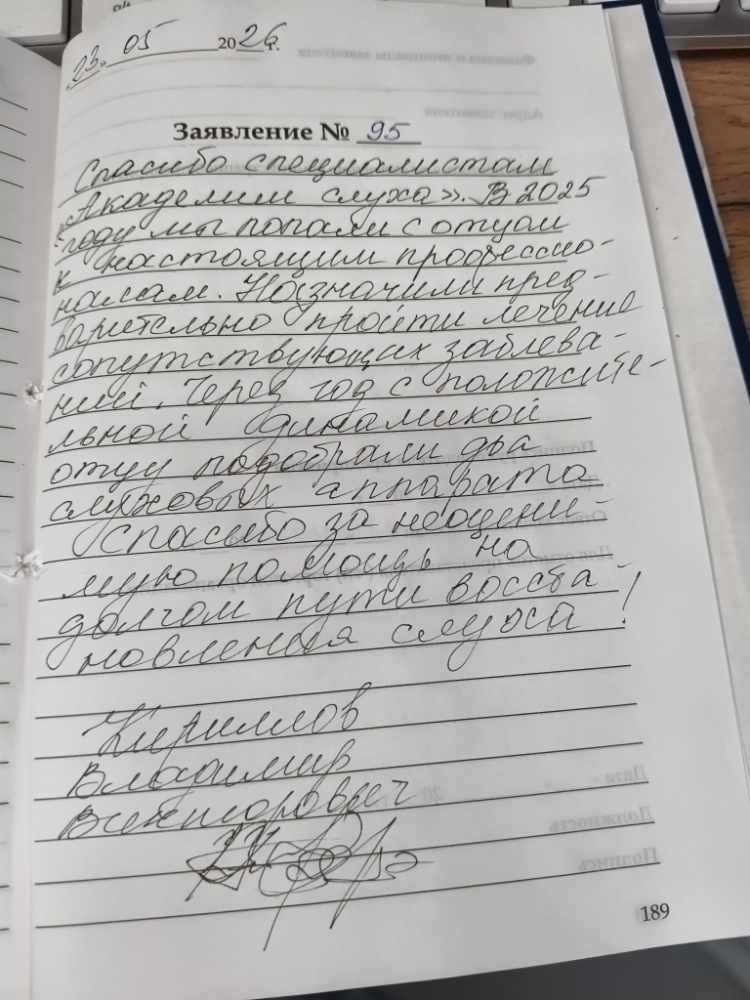 23. 05 2026 г.
Заявление № 95
Спасибо специалистам
«Академии слуха». В 2025
году мы попали с отцом
к настоящим профессио-
налам. Назначили пред-
варительно пройти лечение
сопутствующих заблева-
ний. Через год с положите-
льной динамикой
отцу подобрали два
слуховых аппарата
Спасибо за неоцени-
мую помощь на
долгом пути восста-
новления слуха!
Кириллов
Владимир
Викторович
189